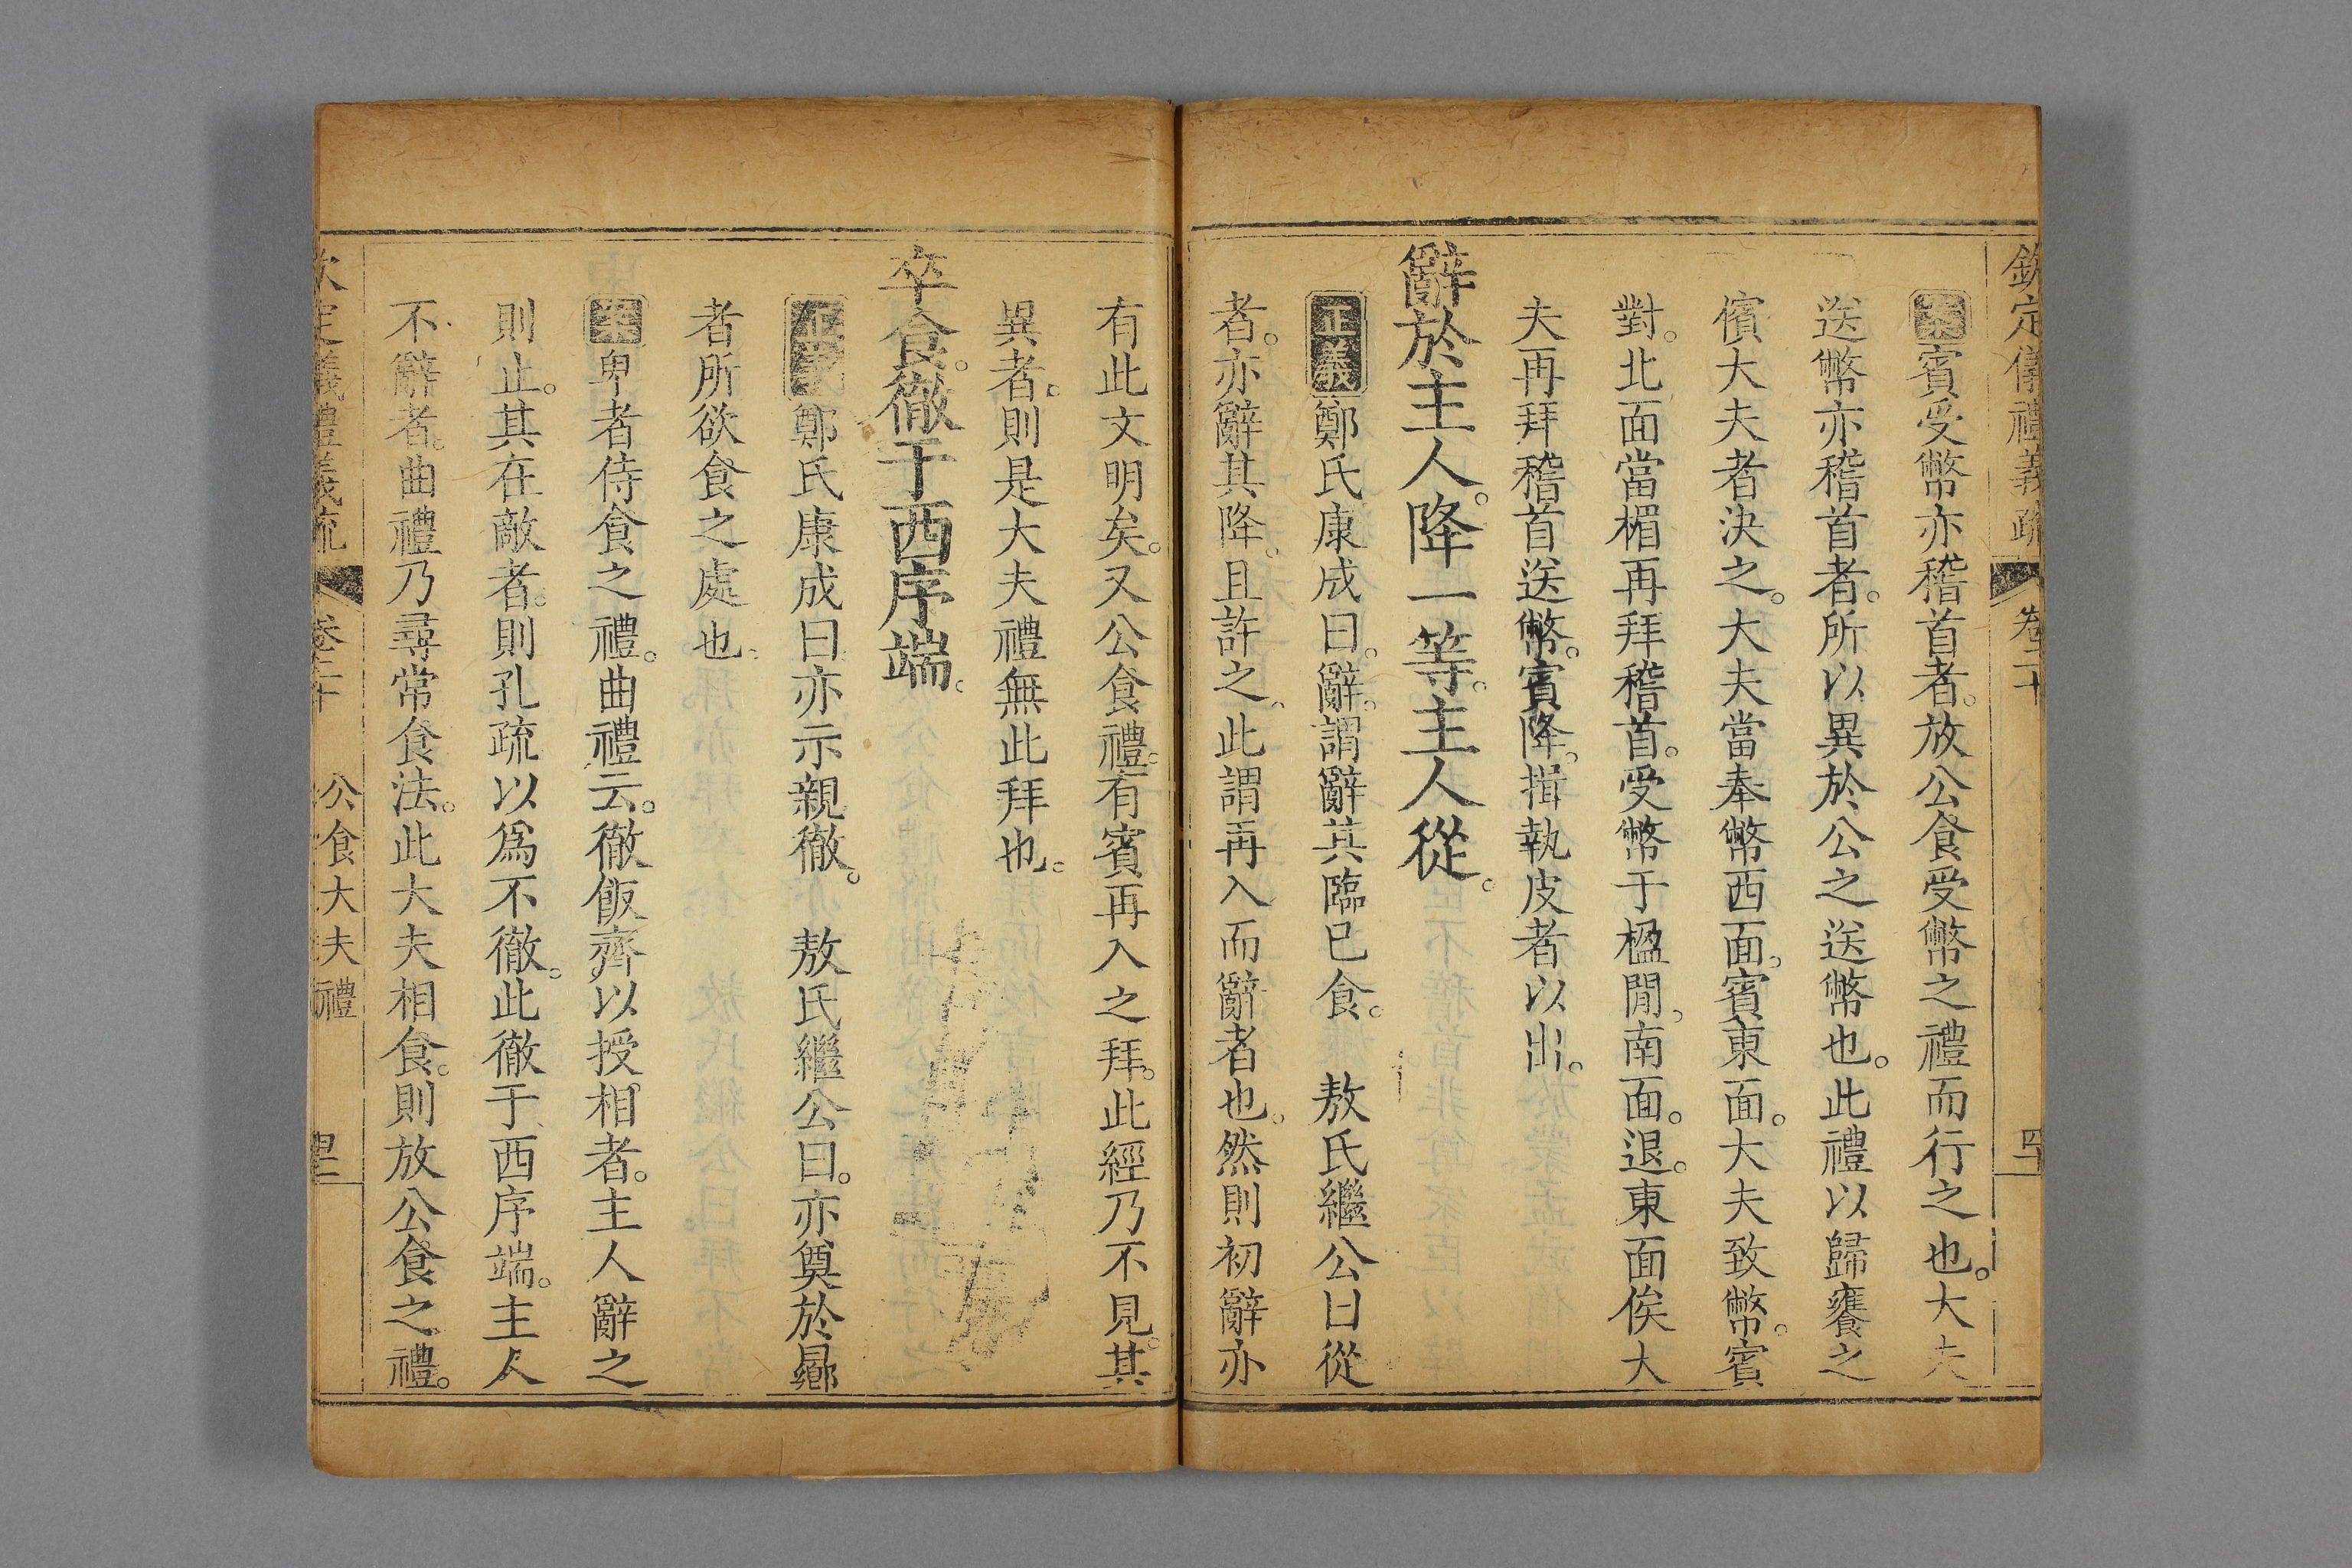 欽定儀禮義疏 卷二十
案賓受幣亦稽首者。放公食受幣之禮而行之也。大夫
送幣亦稽首者。所以異於公之送幣也。此禮以歸饔之
儐大夫者決之。大夫當奉幣西面。賓東面。大夫致幣。賓
對。北面當楣再拜稽首。受幣于楹閒。南面。退。東面俟大
夫再拜稽首送幣。賓降。揖執皮者以出。
辭於主人。降一等。主人從。
正義鄭氏康成曰。辭。謂辭其臨已食。 敖氏繼公曰從
者。亦辭其降。且許之。此謂再入而辭者也。然則初辭亦
有此文明矣。又公食禮。有賓再入之拜。此經乃不見。其
異者。則是大夫禮無此拜也。
卒食。徹于西序端。
正義鄭氏康成曰亦示親徹。 敖氏繼公曰。亦奠於曏
者所欲食之處也。
案卑者侍食之禮。曲禮云。徹飯齊以授相者。主人辭之
則止。其在敵者。則孔疏以爲不徹。此徹于西序端。主人
不辭者。曲禮乃尋常食法。此大夫相食。則放公食之禮。
欽定儀禮義疏 卷二十 公食大夫禮